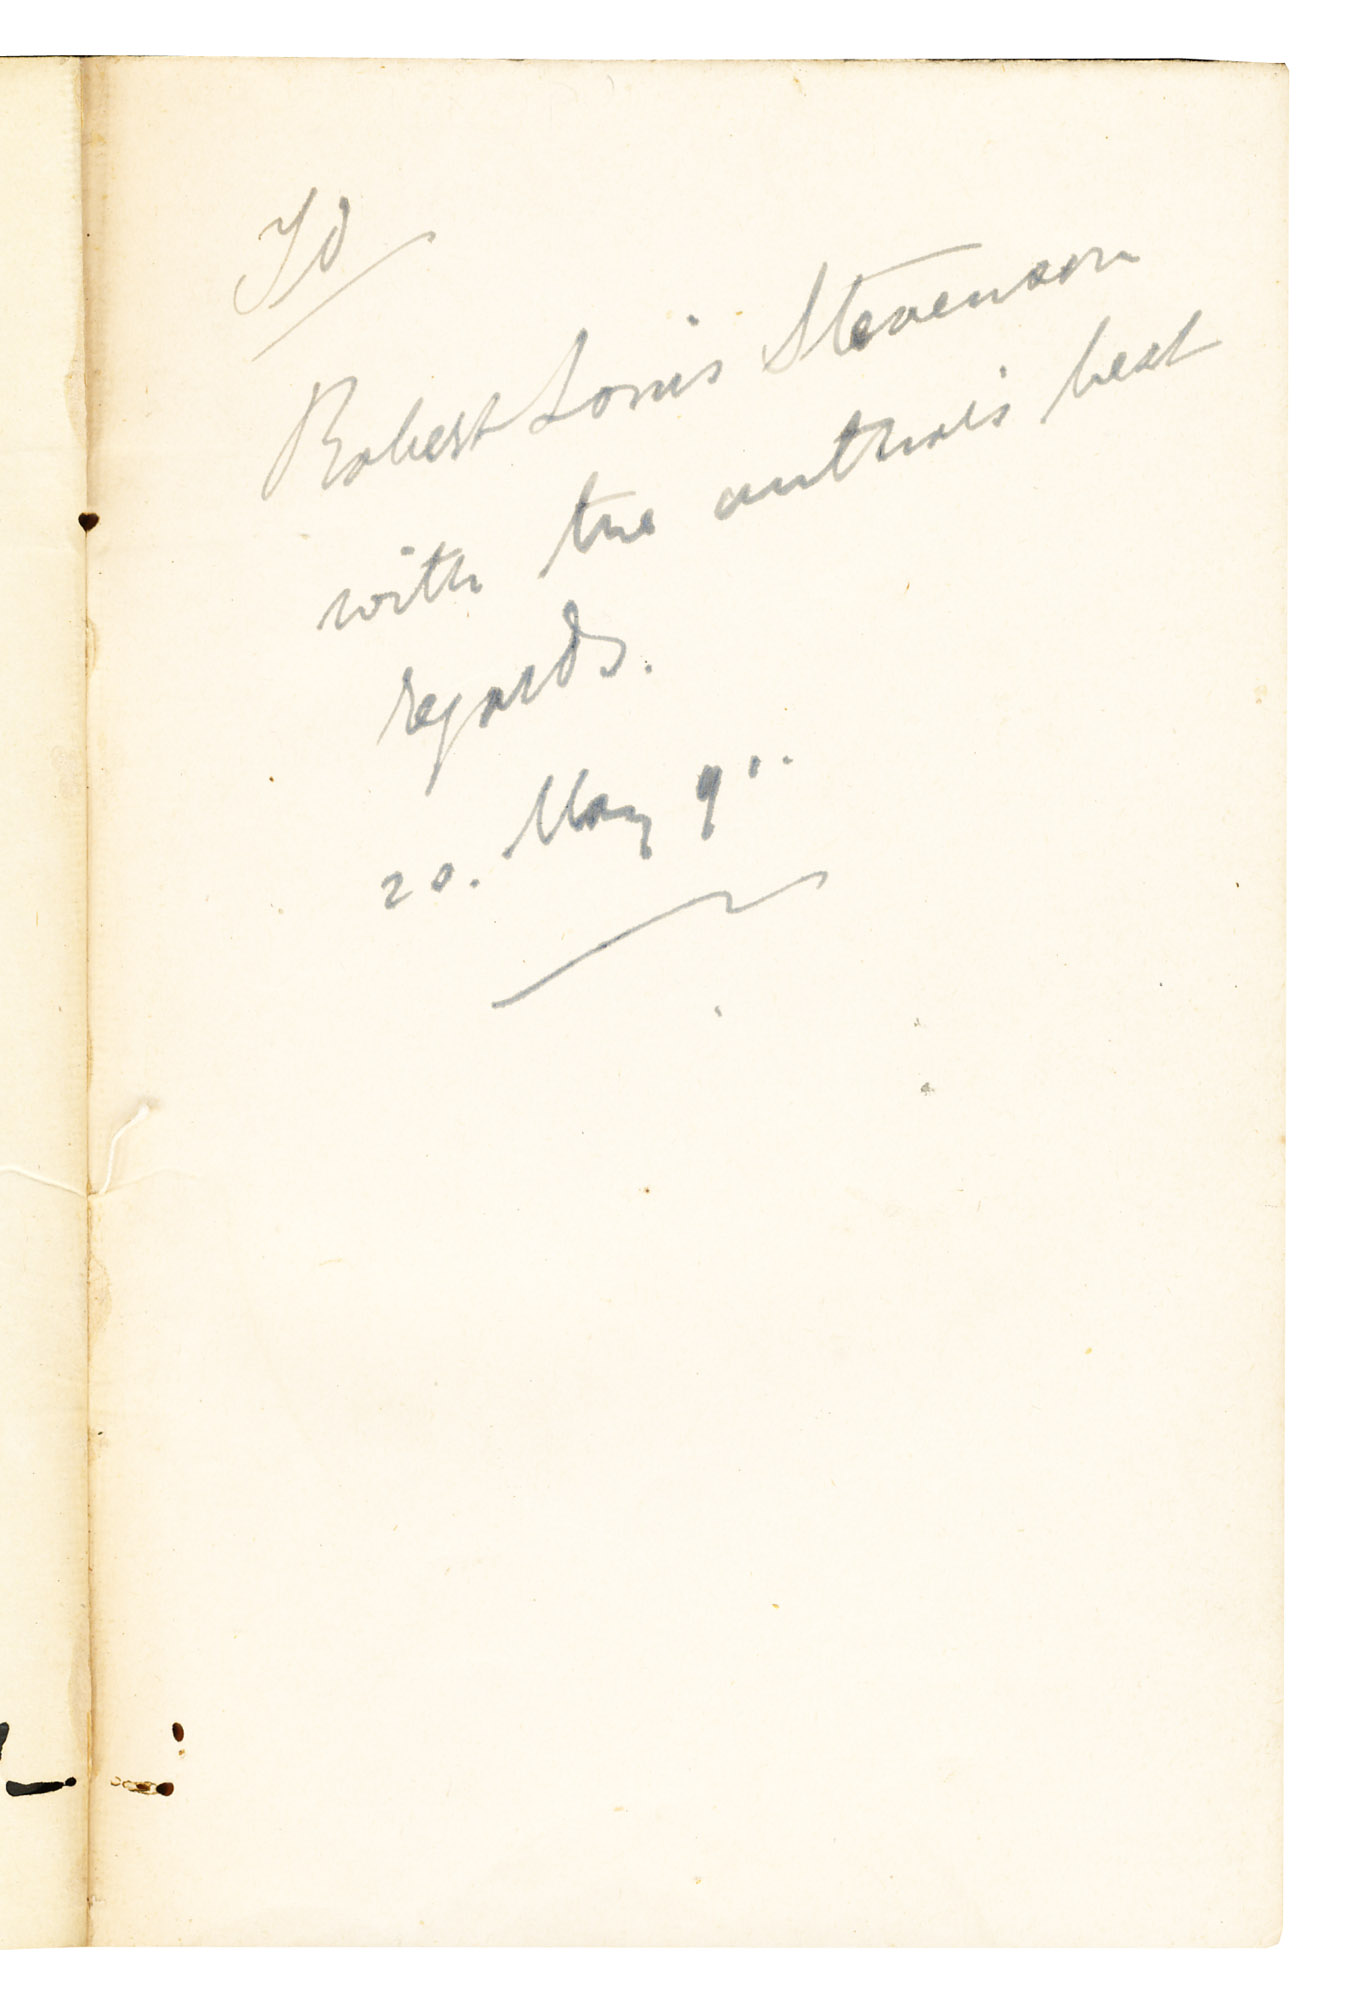 To
Robert Louis Stevenson
with the author's best
regards.
20. May 91.